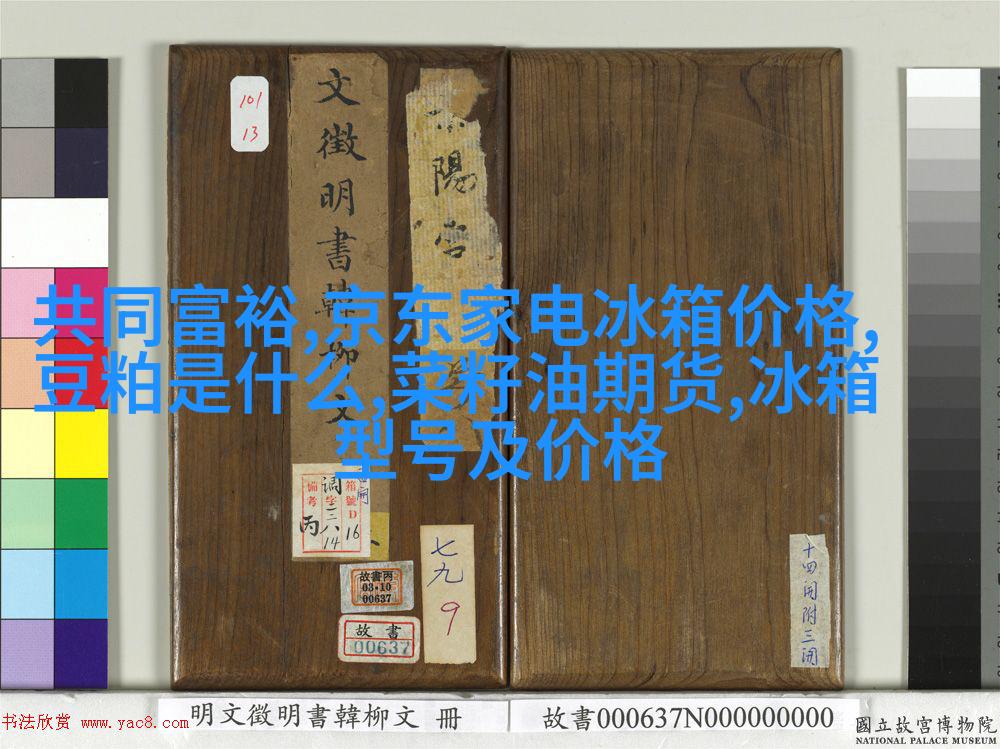 共同富裕,京东家电冰箱价格,
豆粕是什么,菜籽油期货,冰箱
型号及价格
101
13
文徵明書韓柳文
陽宫
箱號D16
調字三八14
備考丙
故書丙
03·10
00637
故書
00637
七九
9
十四開附三開
明文徵明書韓柳文 冊
故書000637N000000000
國立故宮博物院
NATIONAL PALACE MUSEUM
书法欣赏 www.yac8.com